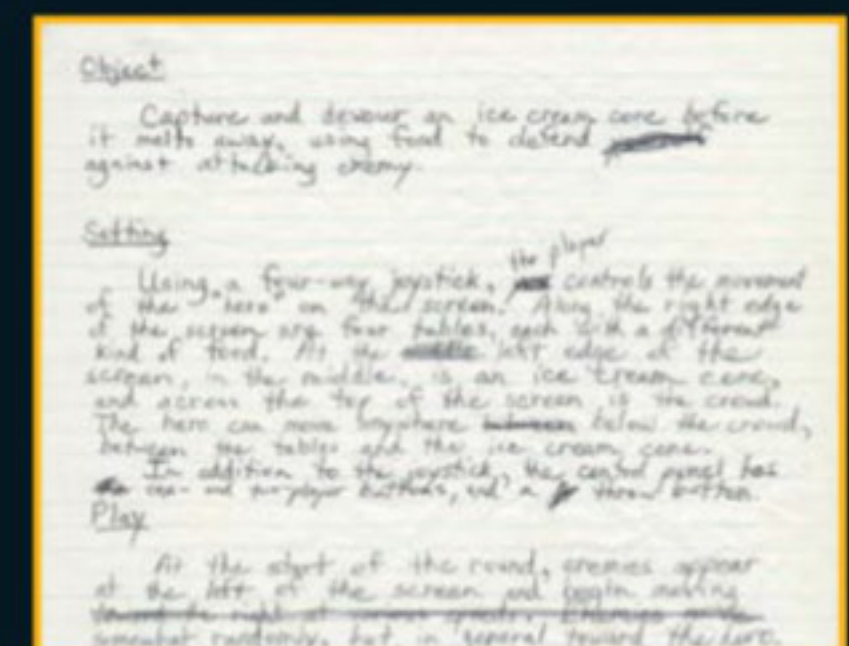 Object
Capture and devour an ice cream cone before
it melts away, using food to defend
against attacking enemy.
Setting
the player
Using a four-way joystick, controls the movement
of the "hero" on the screen. Along the right edge
of the screen are four tables, each with a different
kind of food. At the left edge of the
screen, in the middle, is an ice cream cone,
and across the top of the screen is the crowd.
The hero can move anywhere below the crowd,
between the tables and the ice cream cone.
In addition to the joystick, the control panel has
one- and two-player buttons, and a throw button.
Play
At the start of the round, enemies appear
at the left of the screen and begin moving
somewhat randomly, but in general toward the hero.